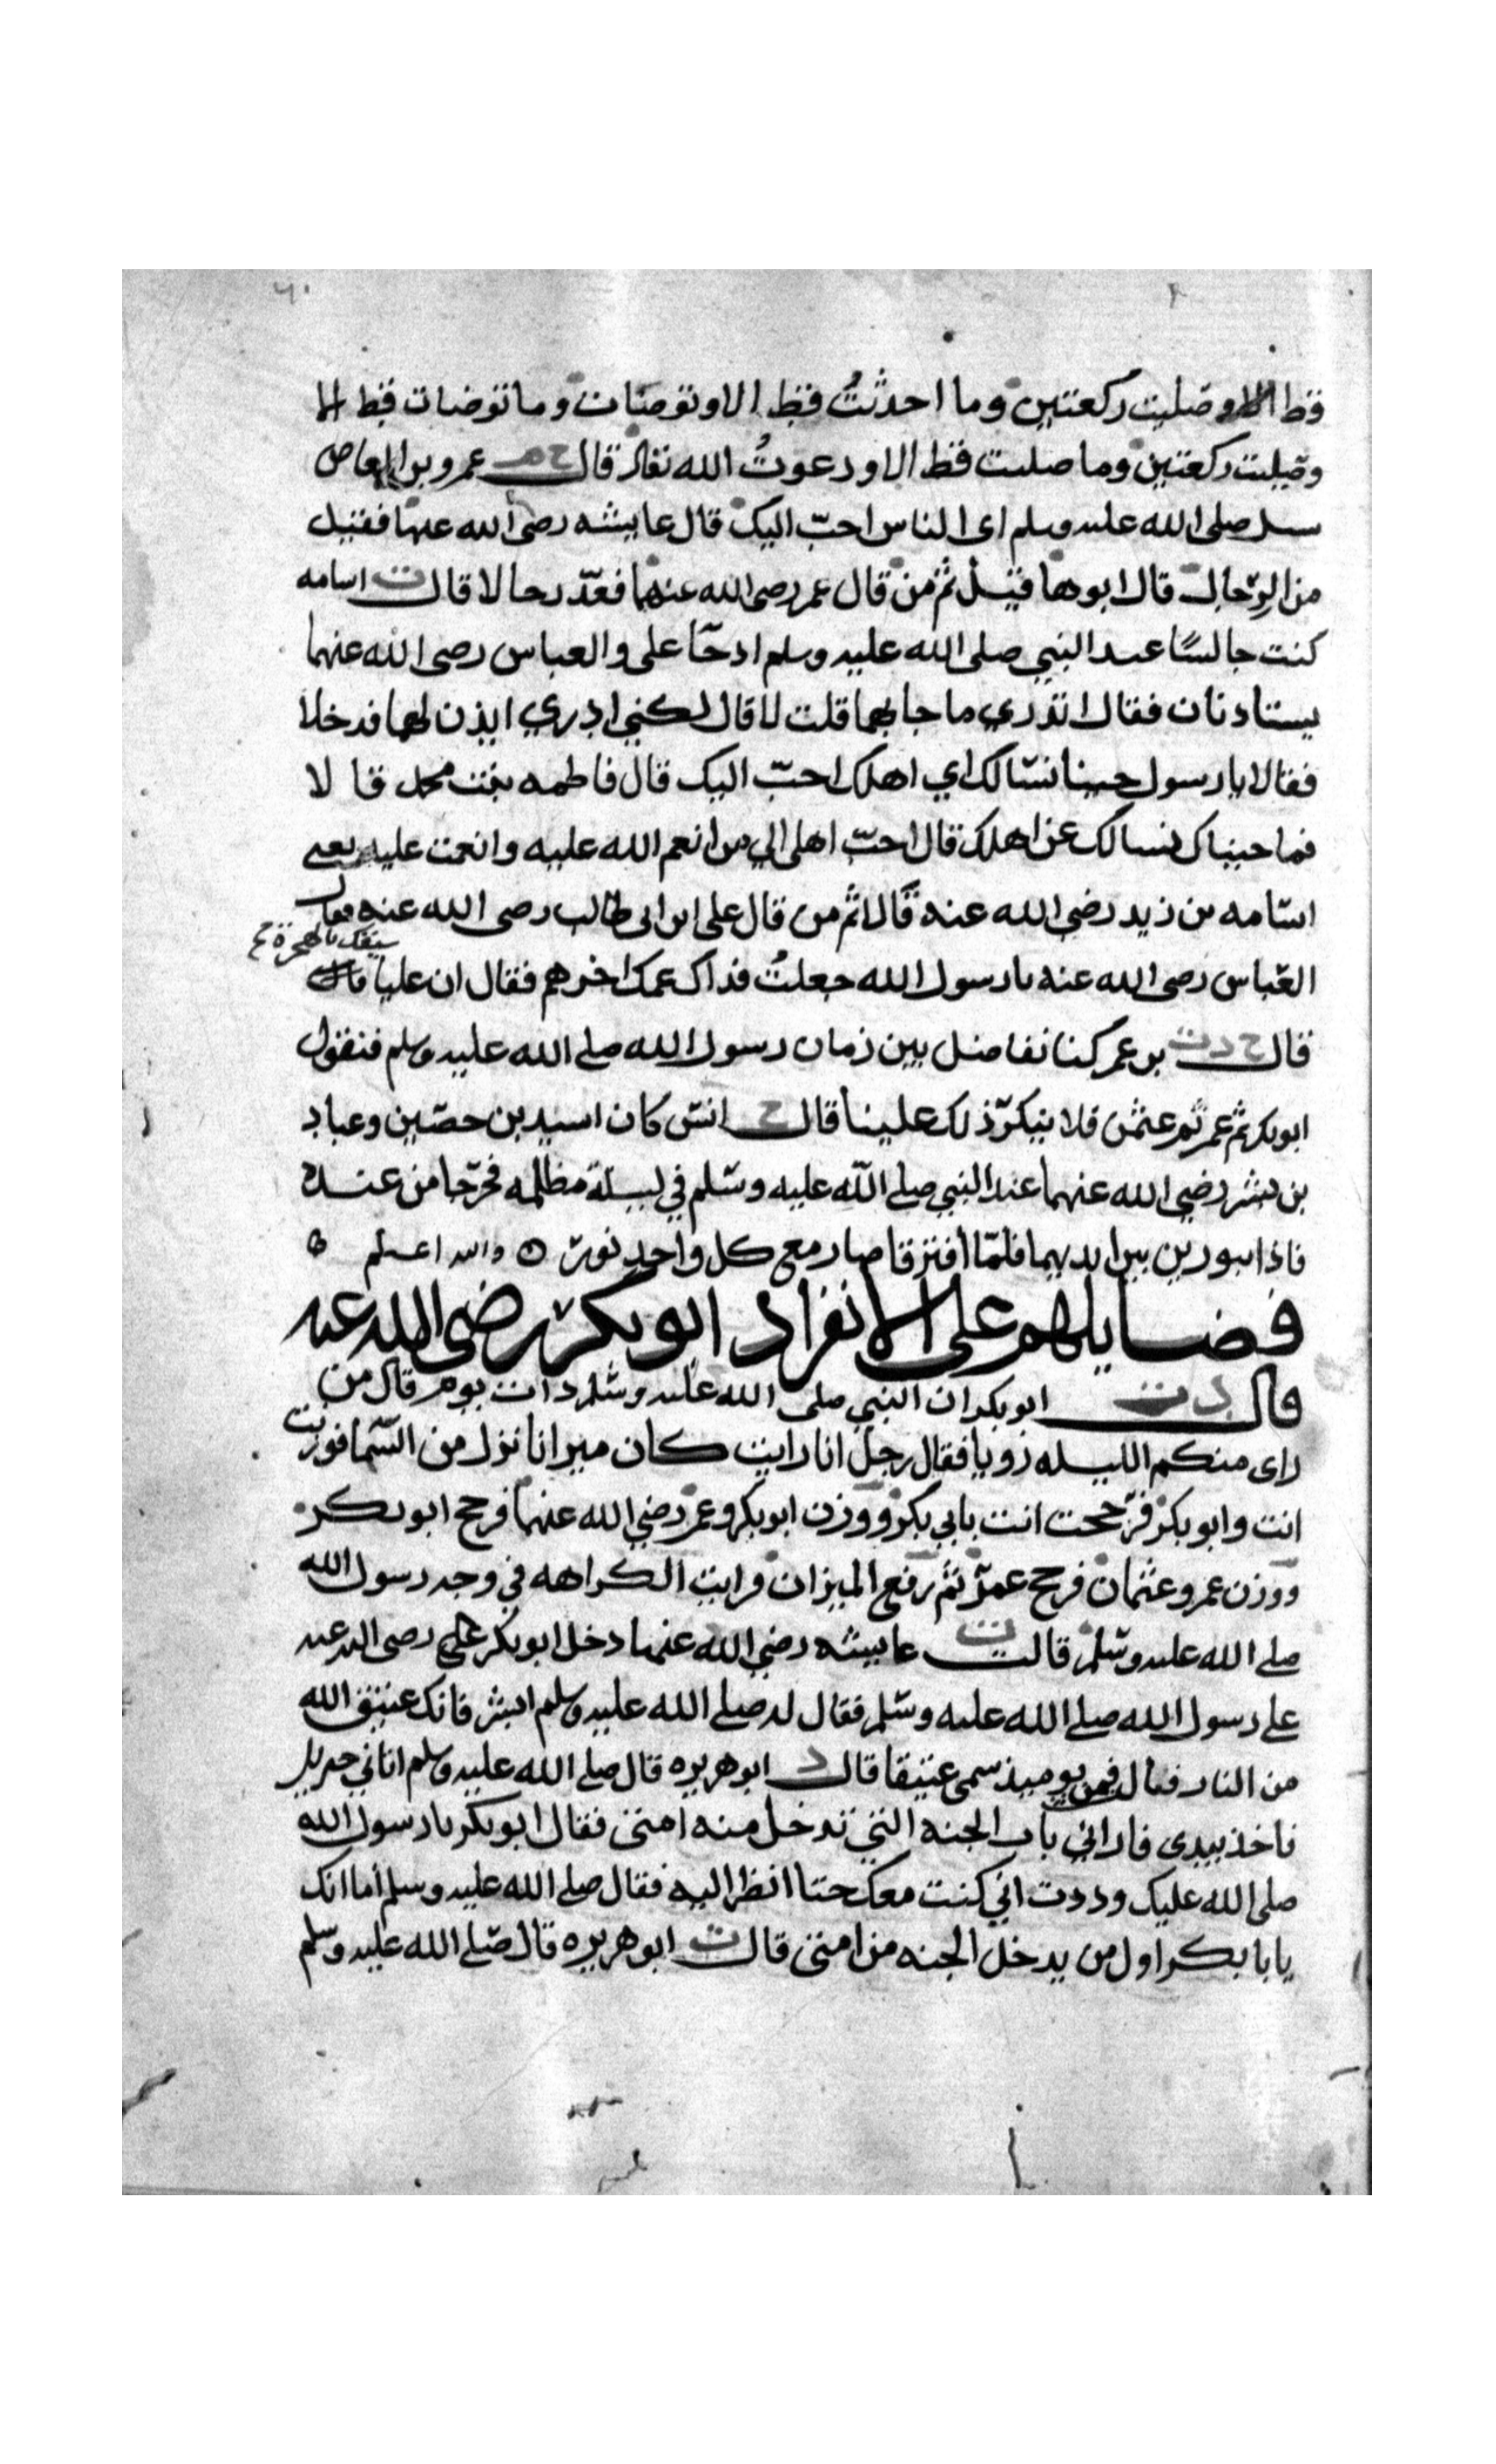 ٦٠
فقط الا وصليت ركعتين وما احدثتُ قط الا وتوضات وما توضات قط الا
وصليت ركعتين وما صليت قط الا ودعوتُ الله تعالى قال خ م عمرو بن العاص
سيل صلى الله عليه وسلم اى الناس احبّ اليك قال عايشه رضى الله عنها فقيل
من الرّجال قال ابوها قيل ثم من قال عمر رضى الله عنهما فعدّ رجالا قال ت اسامه
كنت جالسًا عند النبي صلى الله عليه وسلم اذ جآ على والعباس رضى الله عنهما
يستاذنان فقال اتدري ما جا بهما قلت لا قال لكني ادري ايذن لهما فدخلا
فقالا يا رسول جينا نسالك اي اهلك احبّ اليك قال فاطمه بنت محمد قا لا
فما جيناك نسالك عن اهلك قال احبّ اهلى الي من انعم الله عليه وانعمت عليه يعنى
اسامه بن زيد رضي الله عنه قالا ثم من قال على ابن ابى طالب رضى الله عنه فقال
سبقك بالهجرة
العّباس رضى الله عنه يا رسول الله جعلتُ فداك عمك اخرهم فقال ان عليا
قال خ د ت بن عمر كنا نفاضل بين زمان رسول الله صلى الله عليه وسلم فنقول
ابوبكر ثم عمر ثم عثمن فلا ينكر ذلك علينا قال خ انس كان اسيد بن حصين وعباد
بن بشر رضي الله عنهما عند النبي صلى الله عليه وسلم في ليلة مظلمه فخرجا من عنده
فاذا بنورين بين ايديهما فلمّا افترقا صار مع كل واحد نور والله اعلم
فضايلهم على الانفراد ابوبكر رضى الله عنه
قال د ت ابوبكر ان النبي صلى الله عليه وسلم ذات يوم قال من
راى منكم الليله رويا فقال رجل انا رايت كان ميزانا نزل من السّما فوزنت
انت وابوبكر فرجحت انت بابي بكر ووزن ابوبكر وعمر رضي الله عنهما فرجح ابوبكر
ووزن عمر وعثمان فرجح عمر ثم رفع الميزان فرايت الكراهه في وجه رسول الله
صلى الله عليه وسلم قالت ت عايشه رضي الله عنها دخل ابوبكر رضى الله عنه
على رسول الله صلى الله عليه وسلم فقال له صلى الله عليه وسلم ابشر فانك عتيق الله
من النار قال فمن يوميذ سمى عتيقا قال د ابوهريره قال صلى الله عليه وسلم اتاني جبريل
فاخذ بيدى فاراني باب الجنه التي تدخل منه امتى فقال ابوبكر يا رسول الله
صلى الله عليك وددت اني كنت معك حتا انظر اليه فقال صلى الله عليه وسلم أما انك
يابا بكر اول من يدخل الجنه من امتى قال ت ابوهريره قال صلى الله عليه وسلم